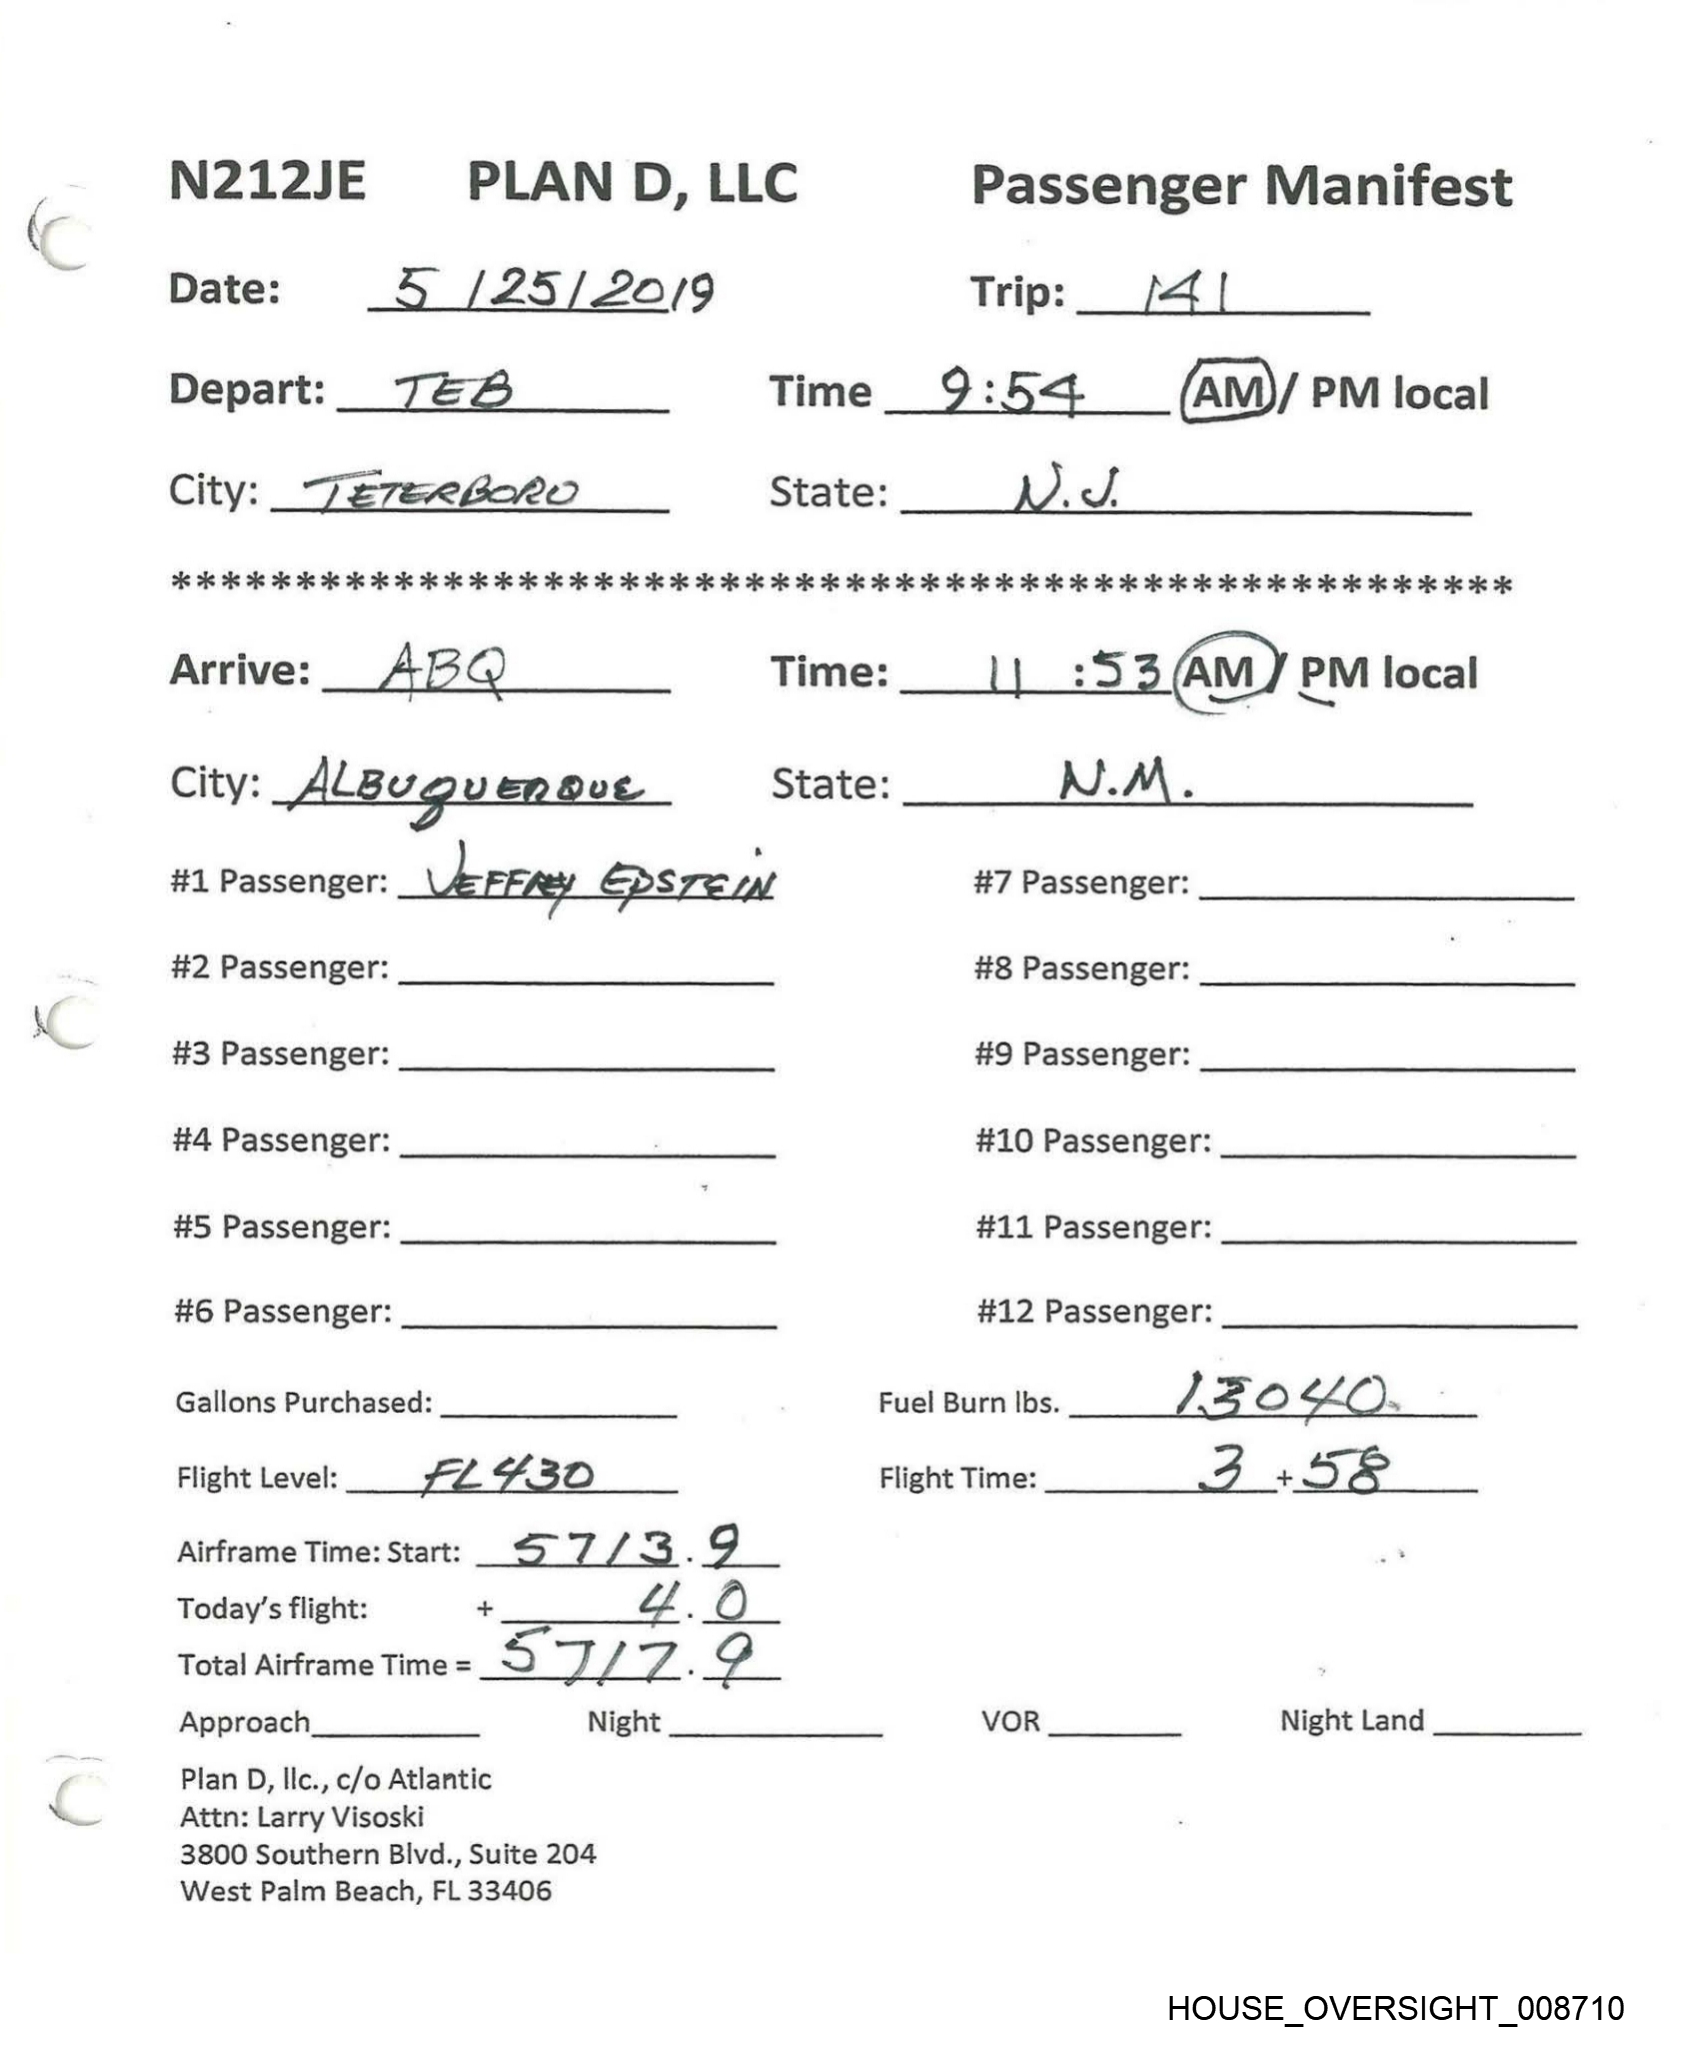 N212JE PLAN D, LLC Passenger Manifest
Date: 5 /25/2019 Trip: 141
Depart: TEB Time 9:54 AM / PM local
City: TETERBORO State: N.J.
******************************************************
Arrive: ABQ Time: 11 :53 AM / PM local
City: ALBUQUERQUE State: N.M.
#1 Passenger: JEFFREY EPSTEIN #7 Passenger:
#2 Passenger: #8 Passenger:
#3 Passenger: #9 Passenger:
#4 Passenger: #10 Passenger:
#5 Passenger: #11 Passenger:
#6 Passenger: #12 Passenger:
Gallons Purchased: Fuel Burn lbs. 13040
Flight Level: FL430 Flight Time: 3 +58
Airframe Time: Start: 5713.9
Today's flight: + 4.0
Total Airframe Time = 5717.9
Approach Night VOR Night Land
Plan D, llc., c/o Atlantic
Attn: Larry Visoski
3800 Southern Blvd., Suite 204
West Palm Beach, FL 33406
HOUSE_OVERSIGHT_008710